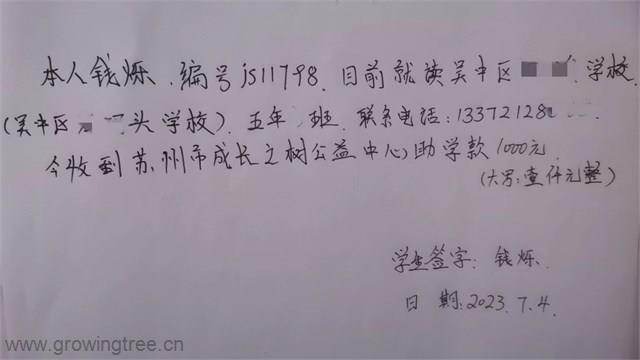 本人钱烁.编号js11798.目前就读吴中区 学校.
(吴中区 头学校).五年 班.联系电话:13372128
今收到苏州市成长之树公益中心助学款1000元.
(大写:壹仟元整)
学生签字:钱烁.
日期:2023.7.4.
www.growingtree.cn